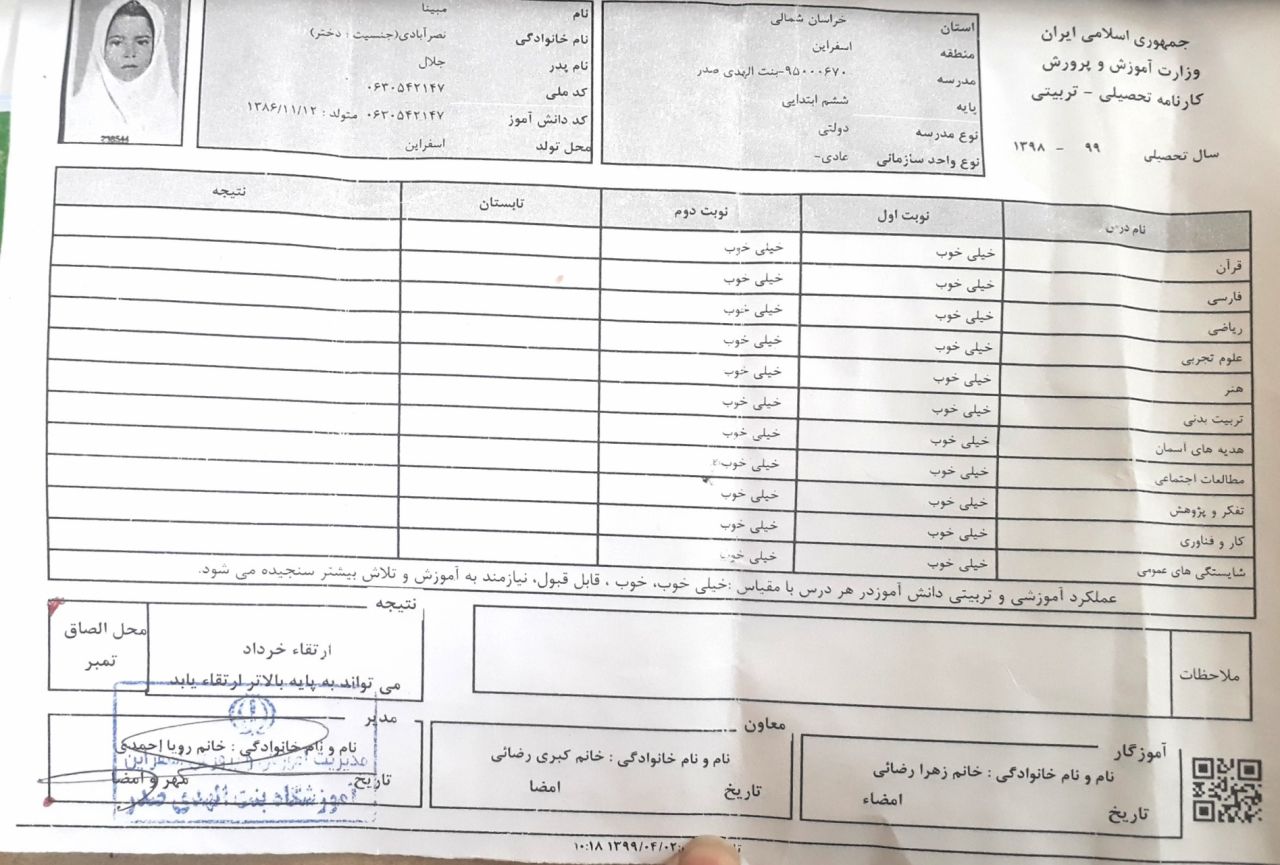 جمهوری اسلامی ایران
وزارت آموزش و پرورش
کارنامه تحصیلی - تربیتی
سال تحصیلی ۹۹ - ۱۳۹۸
استان خراسان شمالی
منطقه اسفراین
مدرسه ۹۵۰۰۰۶۷۰-بنت الهدی صدر
پایه ششم ابتدایی
نوع مدرسه دولتی
نوع واحد سازمانی عادی-
نام مبینا
نام خانوادگی نصرآبادی(جنسیت : دختر)
نام پدر جلال
کد ملی ۰۶۳۰۵۴۲۱۴۷
کد دانش آموز ۰۶۳۰۵۴۲۱۴۷ متولد : ۱۳۸۶/۱۱/۱۲
محل تولد اسفراین
نام درس نوبت اول نوبت دوم تابستان نتیجه
قرآن خیلی خوب خیلی خوب
فارسی خیلی خوب خیلی خوب
ریاضی خیلی خوب خیلی خوب
علوم تجربی خیلی خوب خیلی خوب
هنر خیلی خوب خیلی خوب
تربیت بدنی خیلی خوب خیلی خوب
هدیه های آسمان خیلی خوب خیلی خوب
مطالعات اجتماعی خیلی خوب خیلی خوب
تفکر و پژوهش خیلی خوب خیلی خوب
کار و فناوری خیلی خوب خیلی خوب
شایستگی های عمومی خیلی خوب خیلی خوب
عملکرد آموزشی و تربیتی دانش آموزدر هر درس با مقیاس :خیلی خوب، خوب ، قابل قبول، نیازمند به آموزش و تلاش بیشتر سنجیده می شود.
ملاحظات
نتیجه
ارتقاء خرداد
می تواند به پایه بالاتر ارتقاء یابد
محل الصاق
تمبر
آموزگار
نام و نام خانوادگی : خانم زهرا رضائی
امضاء
تاریخ
معاون
نام و نام خانوادگی : خانم کبری رضائی
تاریخ امضا
مدیر
نام و نام خانوادگی : خانم رویا احمدی
تاریخ مهر و امضا
آموزشگاه بنت الهدی صدر
۱۳۹۹/۰۴/۰۲ ۱۰:۱۸